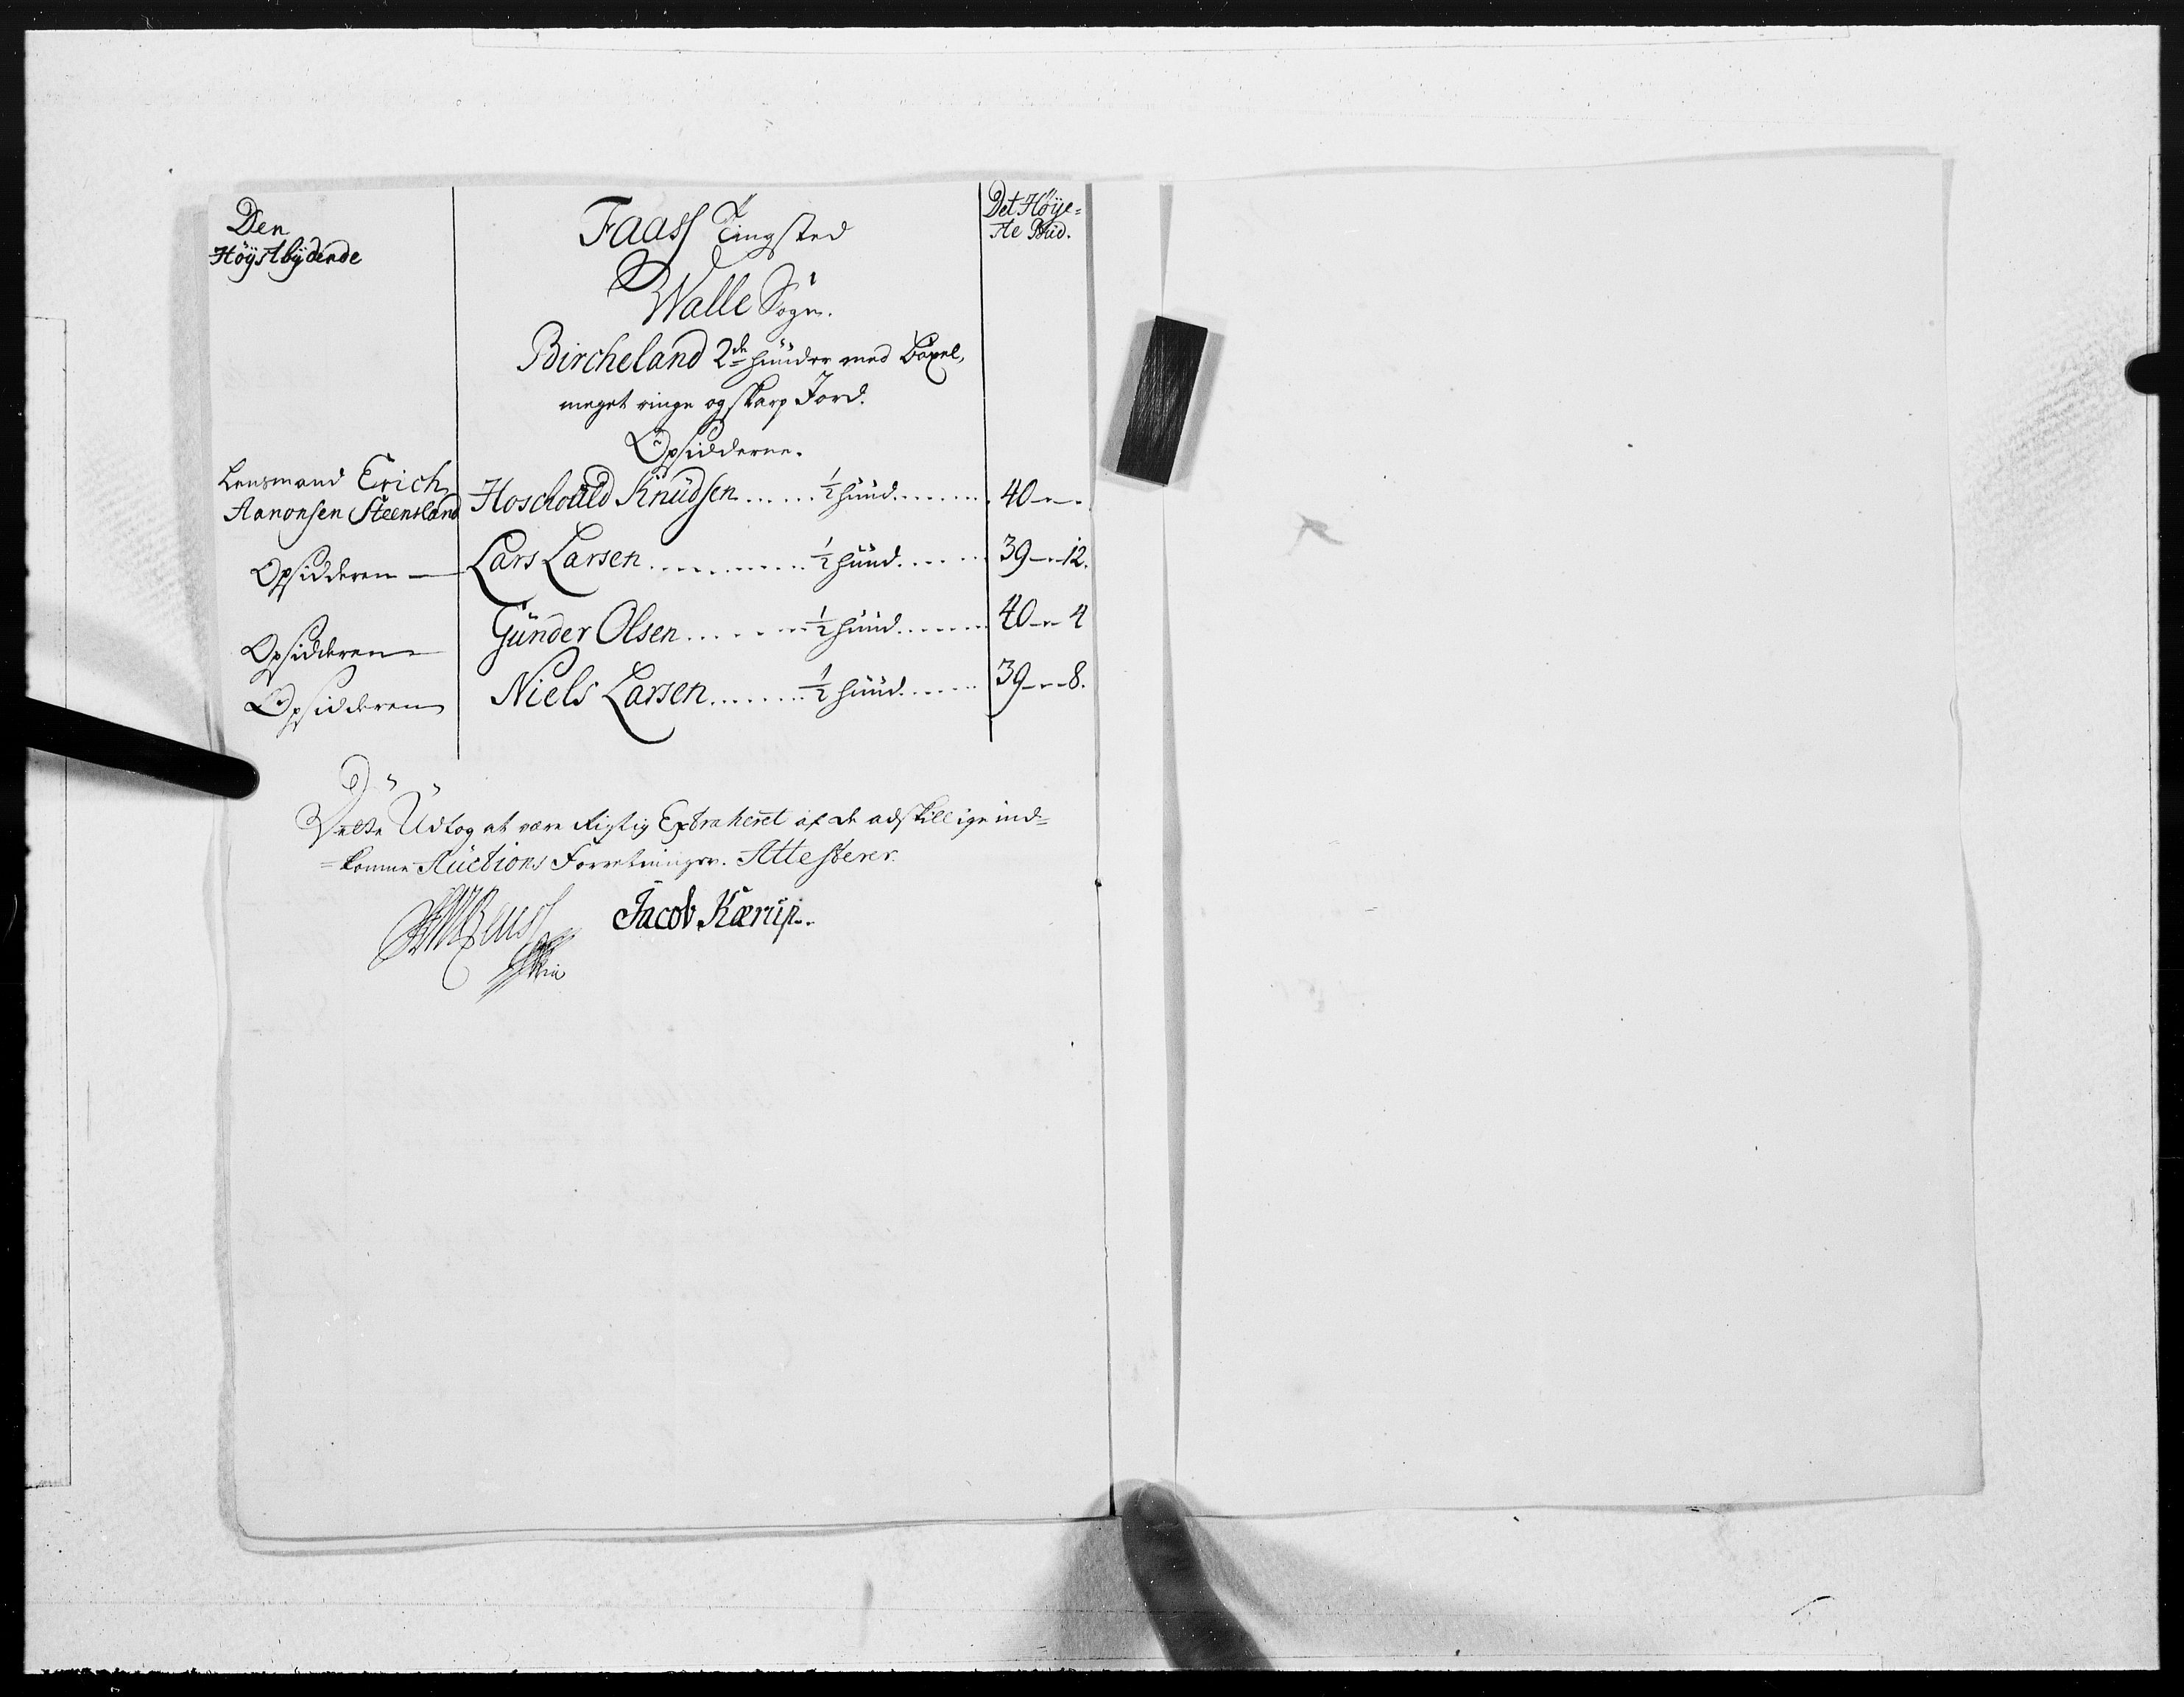 Den
Höÿstbÿdende
Faass Tingsted
Det Höÿe-
ste Bud.
Walle Sogn.
Bircheland 2de huuder med böxel,
meget ringe og skarp Jord.
Opsidderne.
Lensmand Erich
Aanonsen Steensland
Hoschould Knudsen ...... ½ huud ........ 40 - -
Opsidderen Lars Larsen ........... ½ huud ....... 39 - 12.
Opsidderen Gunder Olsen ........ ½ huud ....... 40 - 4
Opsidderen Niels Larsen ........ ½ huud ....... 39 - 8.
Dette Udtog at være Rigtig Extraheret af de adskillige ind=
=komne Auctions Forretninger. Attesterer
Jacob Kærup.